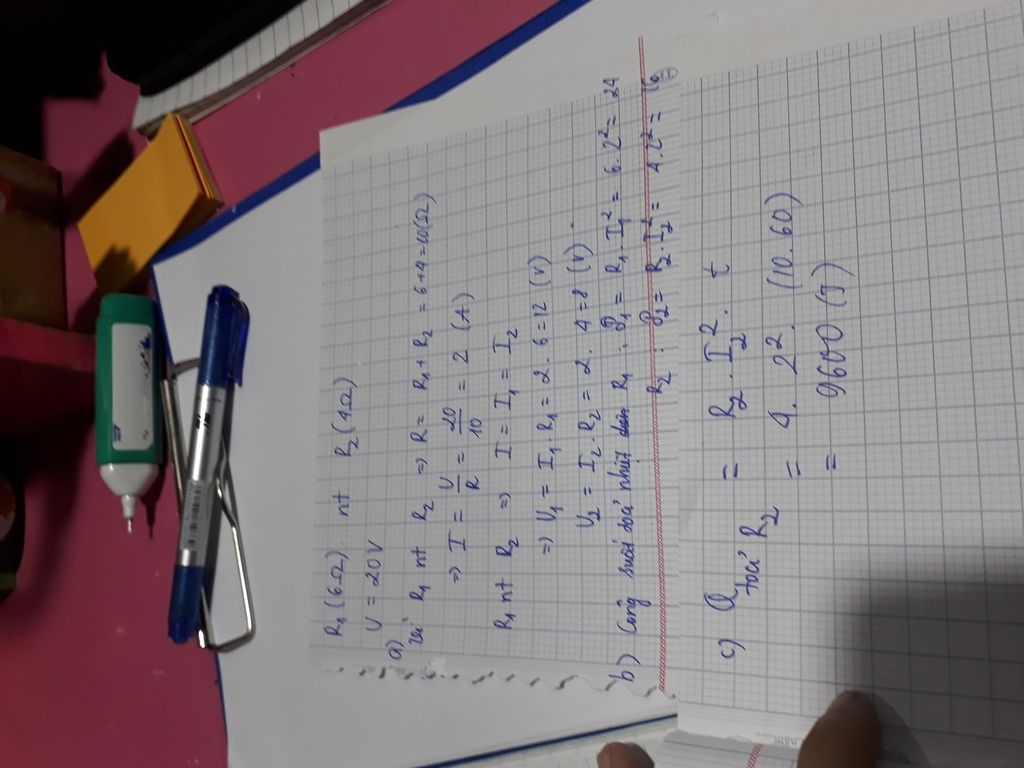 R₁ (6Ω) nt R₂ (4Ω)
U = 20V
a)
Vì R₁ nt R₂ => R = R₁ + R₂ = 6+4 = 10(Ω)
=> I = U/R = 20/10 = 2 (A)
R₁ nt R₂ => I = I₁ = I₂
=> U₁ = I₁ . R₁ = 2 . 6 = 12 (V)
U₂ = I₂ . R₂ = 2 . 4 = 8 (V).
b) Công suất toả nhiệt R₁ : P₁ = R₁ . I₁² = 6 . 2² = 24
R₂ : P₂ = R₂ . I₂² = 4.2² = 16
c) Q toả R₂ = R₂ . I₂² . t
= 4 . 2² . (10 . 60)
= 9600 (J)